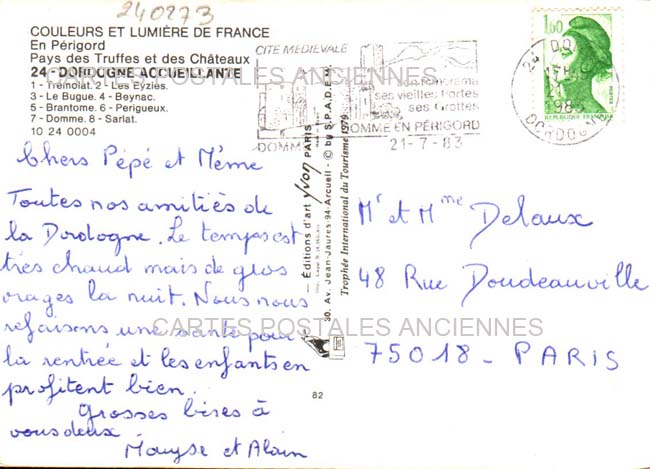 240273
COULEURS ET LUMIÈRE DE FRANCE
En Périgord
Pays des Truffes et des Châteaux
24 - DORDOGNE ACCUEILLANTE
1 - Trémolat. 2 - Les Eyzies.
3 - Le Bugue. 4 - Beynac.
5 - Brantome. 6 - Perigueux.
7 - Domme. 8 - Sarlat.
10 24 0004
Chers Pépé et Mémé
Toutes nos amitiés de
la Dordogne. Le temps est
très chaud mais de gros
orages la nuit. Nous nous
refaisons une santé pour
la rentrée et les enfants en
profitent bien.
Grosses bises à
vous deux
Maryse et Alain
CARTES POSTALES ANCIENNES
CARTES POSTALES ANCIENNES
Editions d'art Yvon PARIS
30. Av. Jean-Jaurès-94-Arcueil - © by S.P.A.D.E.M.
Trophée International du Tourisme 1979
82
CITE MEDIEVALE
son Panorama
ses vieilles Portes
ses Grottes
DOMME
DOMME EN PÉRIGORD
21-7-83
DORDOGNE
1,60
POSTES
REPUBLIQUE FRANÇAISE
Mr et Mme Delaux
48 Rue Doudeauville
75018 - PARIS